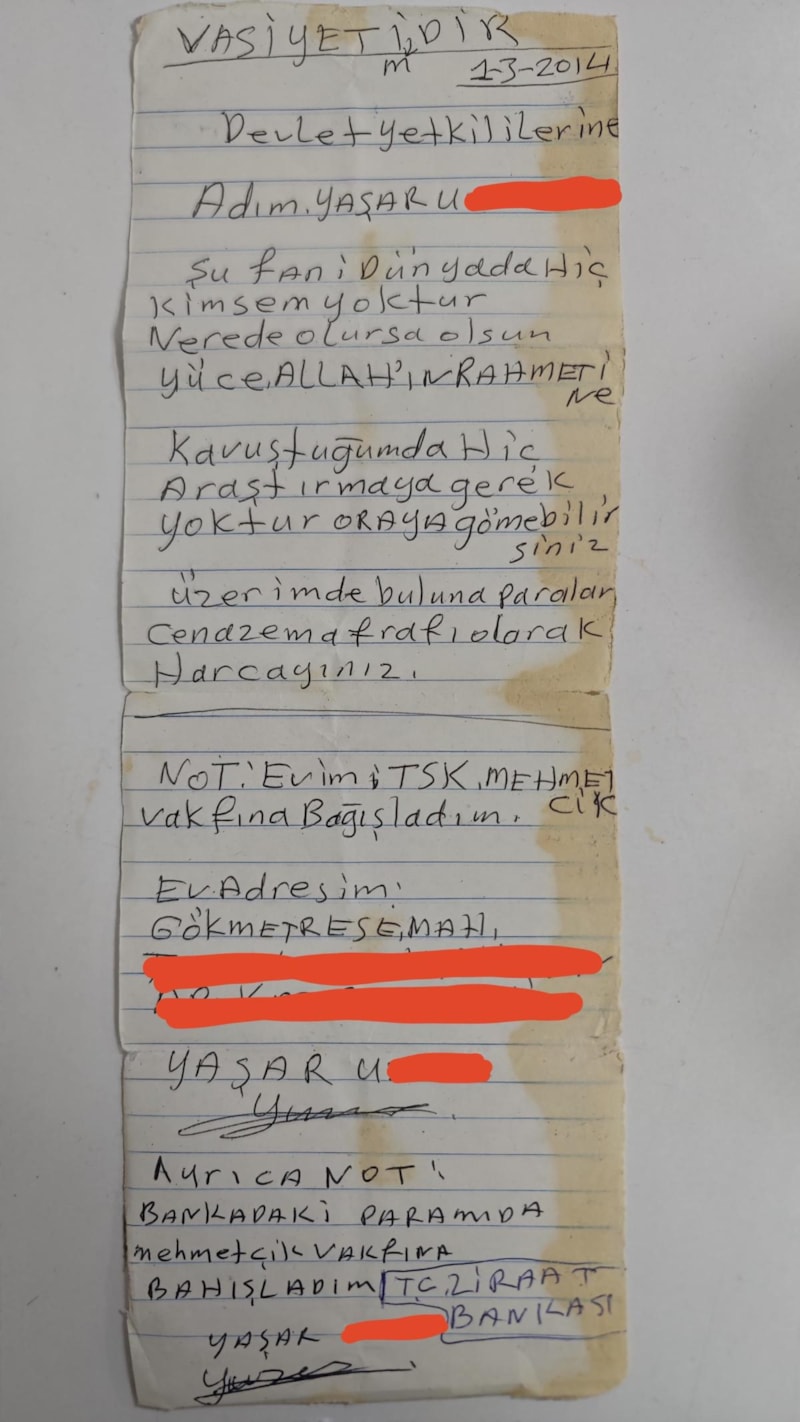 VASİYETİMDİR
1-3-2014
Devlet yetkililerine
Adım. YAŞAR U
Şu fAni Dünyada Hiç
Kimsem yoktur
Nerede olursa olsun
yüce, ALLAH'IN RAHMETİ
Ne
Kavuştuğumda Hiç
Araştırmaya gerek
yoktur ORAYA gömebilir
siniz
üzerimde buluna paralar,
cenazem afrafı olarak
Harcayınız.
NOT: Evimi TSK, MEHMET
CİK
vakfına Bağışladım.
Ev Adresim:
GÖKMETRESE, MAH,
YAŞAR U
AyrıCA NOT:
BANKADAKİ PARAMIDA
mehmetçik VAKFINA
BAHIŞLADIM TC. ZİRAAT
BANKASI
YAŞAR